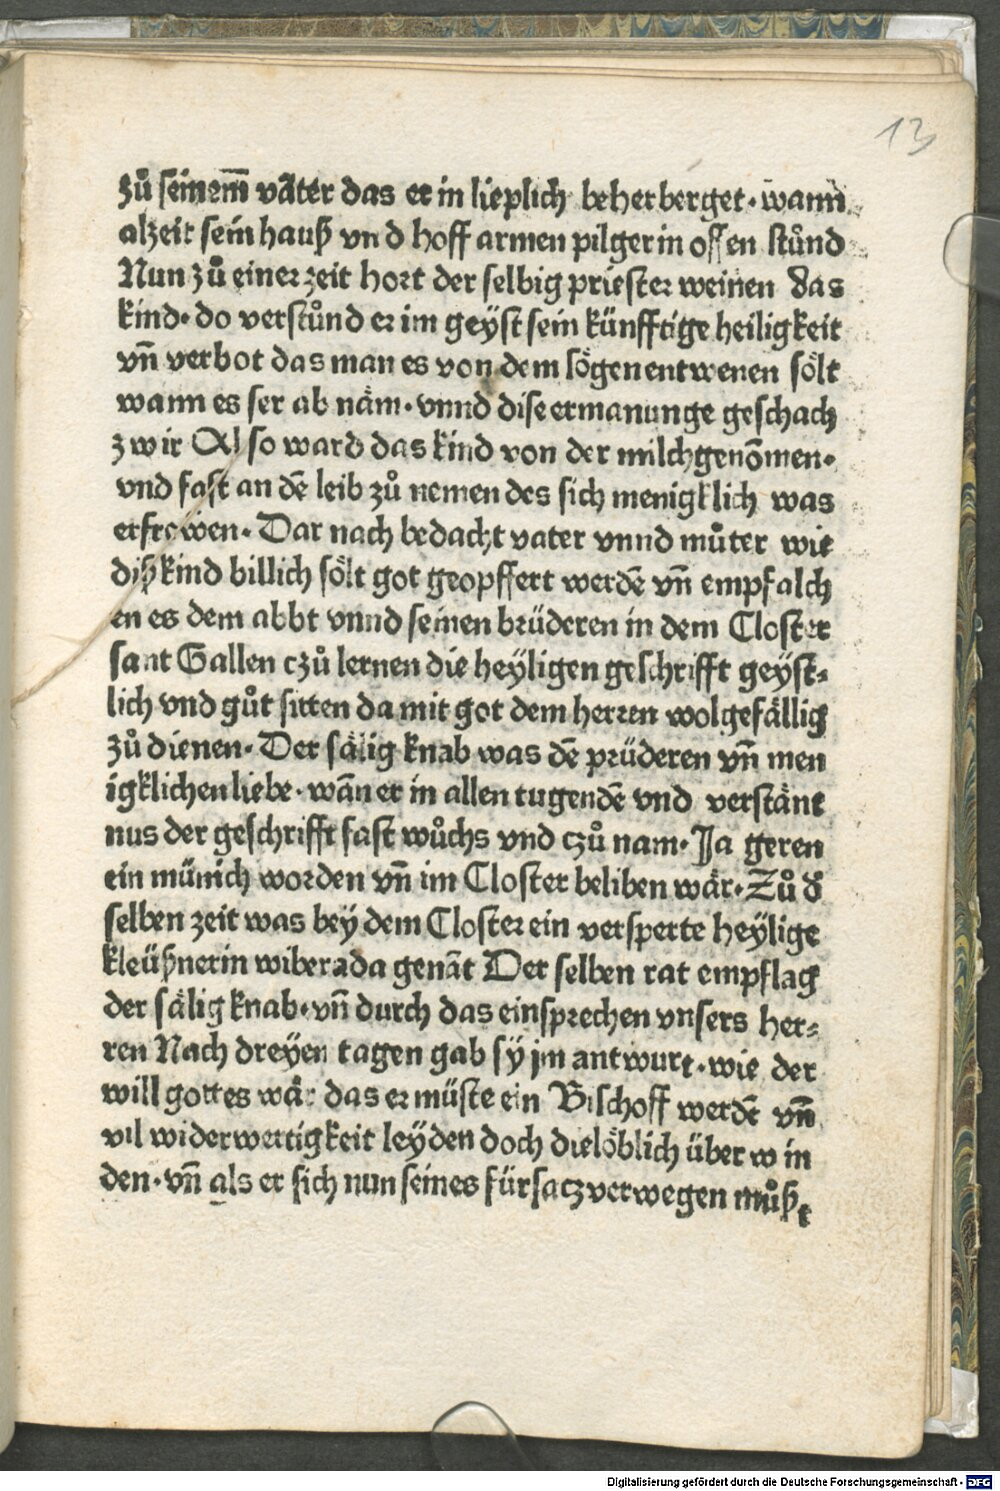 13
zů seinem̄ väter das er in lieplich beherberget · wann
alzeit sein hauß vnd hoff armen pilgerin offen stůnd
Nun zů einer zeit hort der selbig priester weinen das
kind · do verstůnd er im geyst sein künfftige heiligkeit
vn̄ verbot das man es von dem sögen entwenen sölt
wann es ser ab näm · vnnd dise ermanunge geschach
zwir Also ward das kind von der milch genōmen ·
vnd fast an dē leib zů nemen des sich menigklich was
erfrowen · Dar nach bedacht vater vnnd můter wie
diß kind billich sölt got geopffert werdē vn̄ empfalch
en es dem abbt vnnd seinen brüderen in dem Closter
sant Gallen czů lernen die heyligen geschrifft geyst⸗
lich vnd gůt sitten da mit got dem herren wolgefällig
zů dienen · Der sälig knab was dē prüderen vn̄ men
igklichen liebe · wān er in allen tugendē vnd verstänt
nus der geschrifft fast wůchs vnd czů nam · Ja geren
ein münich worden vn̄ im Closter beliben wär · Zů d̄
selben zeit was bey dem Closter ein versperte heylige
kleüßnerin wiberada genāt Der selben rat empflag
der sälig knab · vn̄ durch das einsprechen vnsers her⸗
ren Nach dreyen tagen gab sy jm antwurt · wie der
will gottes wär das er müste ein Bischoff werdē vn̄
vil widerwertigkeit leyden doch die löblich überwin
den · vn̄ als er sich nun seines fürsacz verwegen můßt
Digitalisierung gefördert durch die Deutsche Forschungsgemeinschaft - DFG